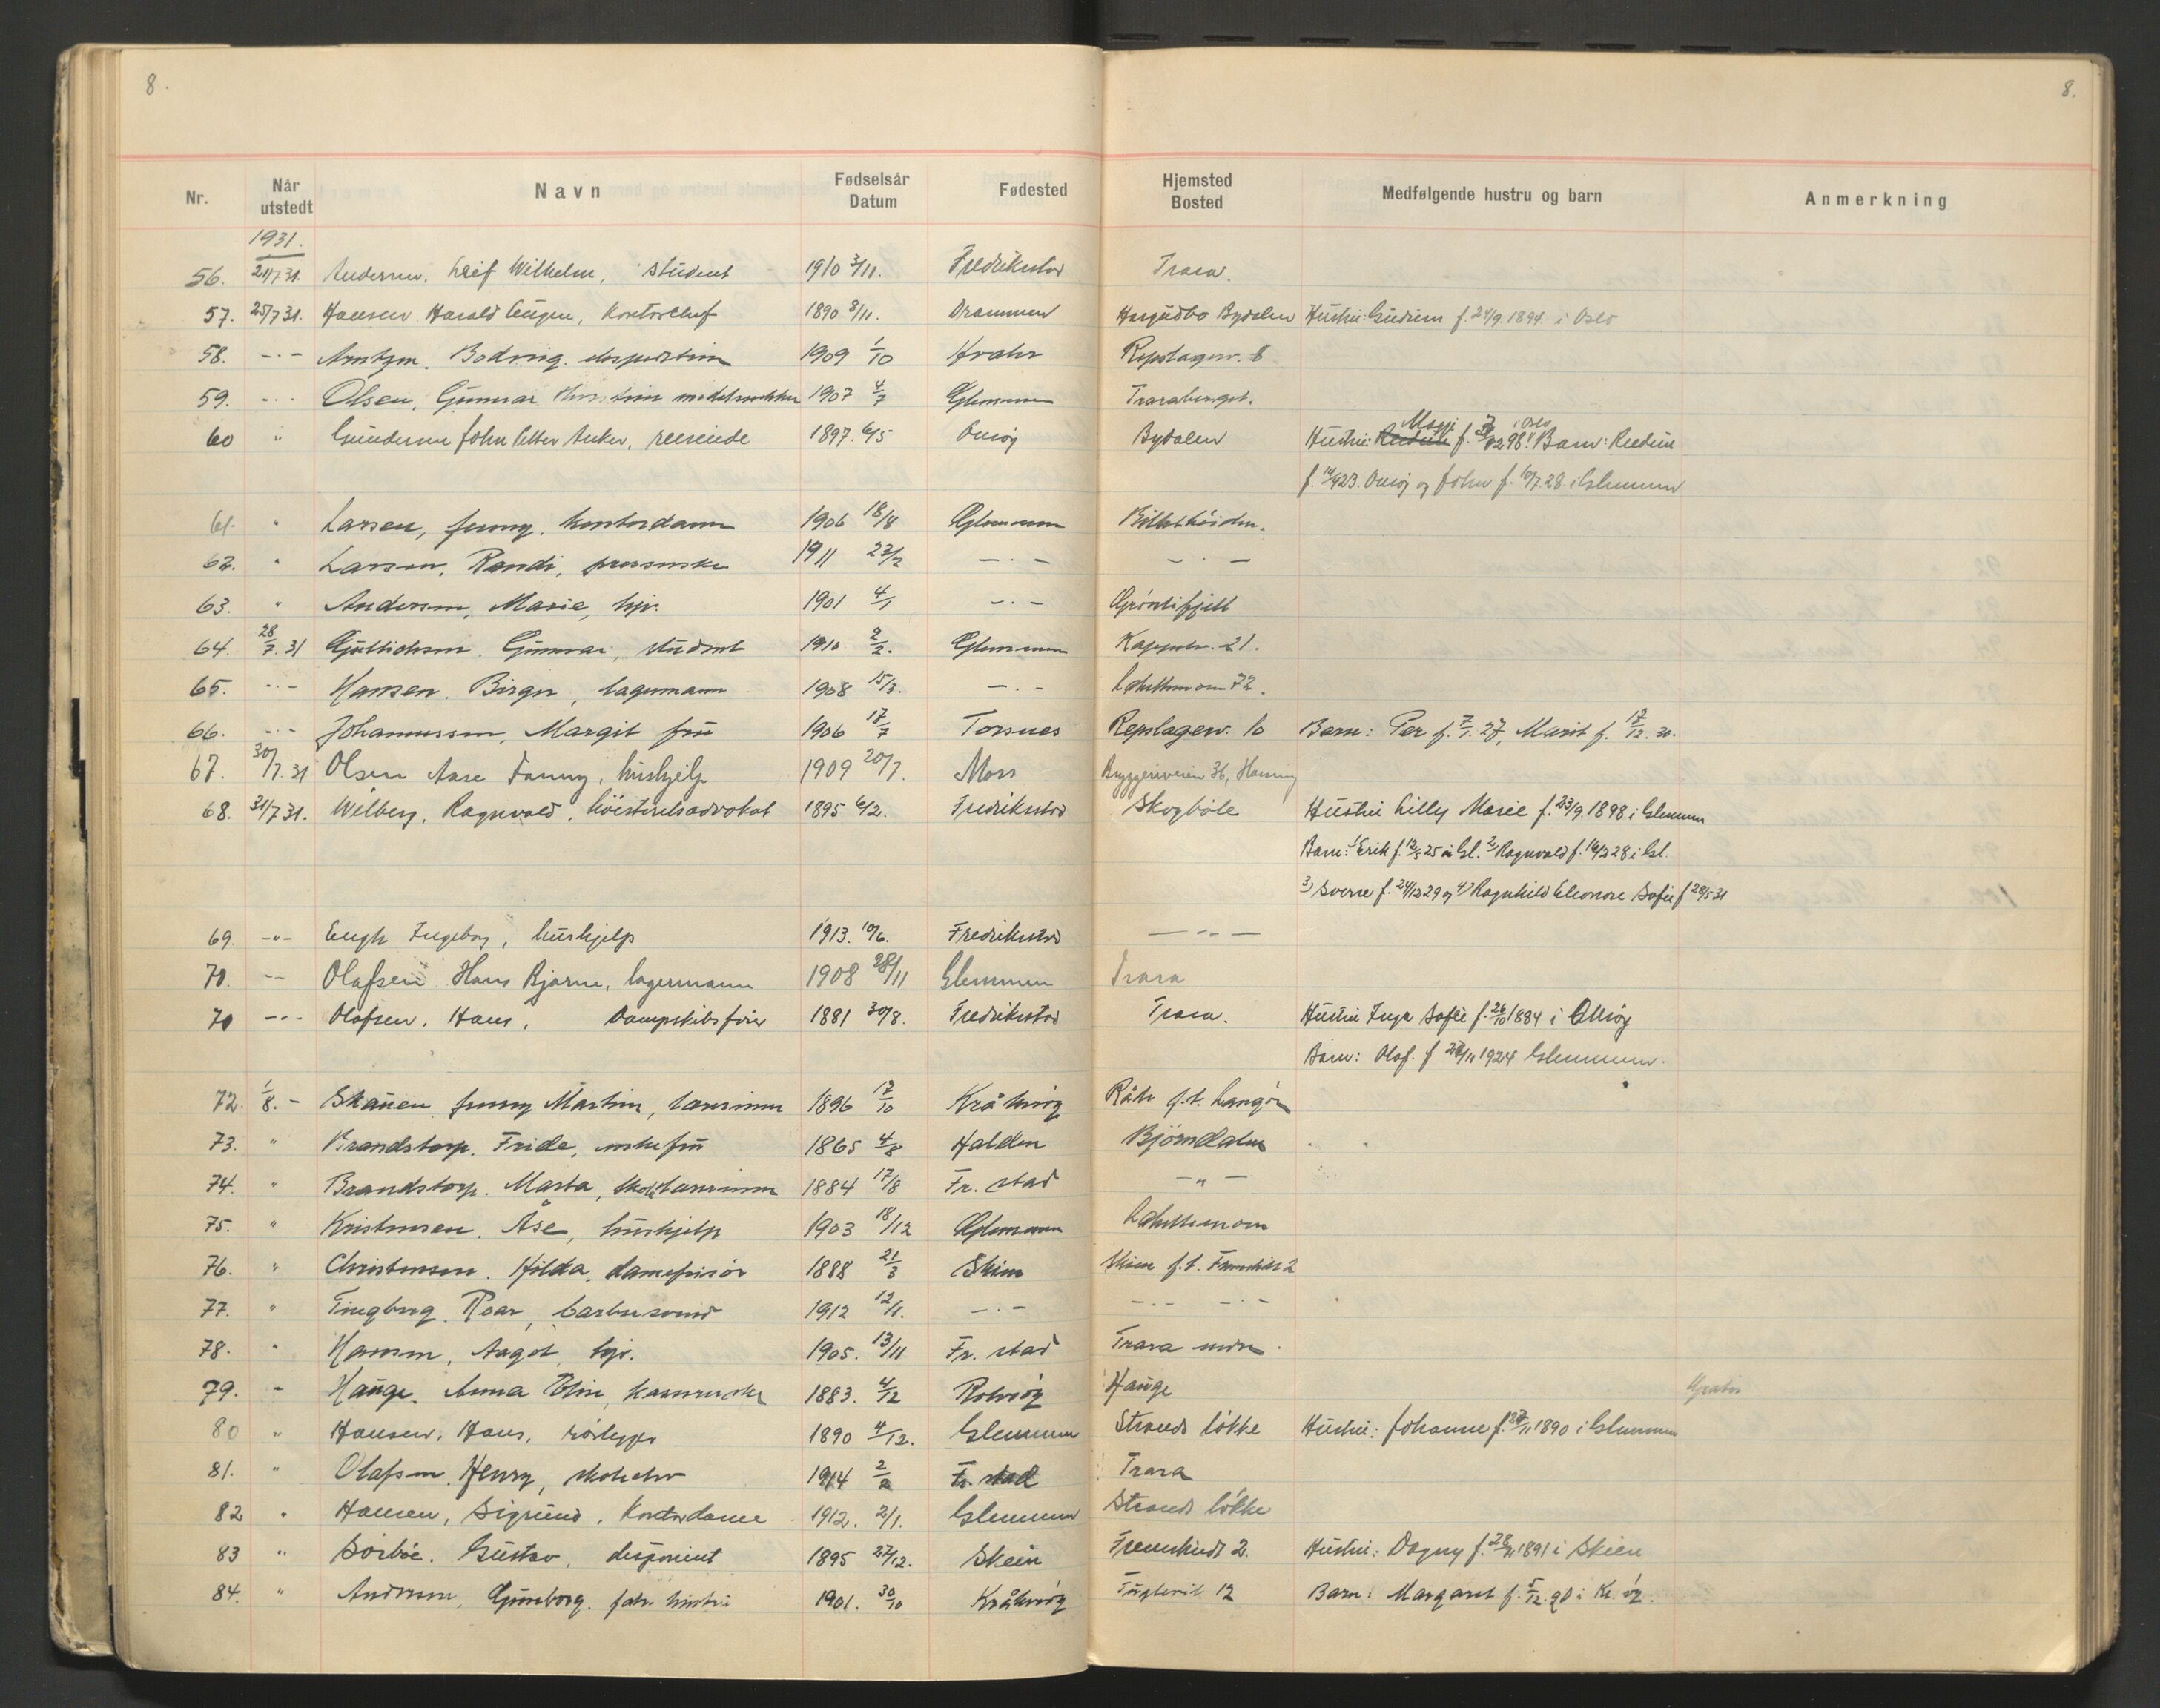 8.
8.
Nr. Når utstedt Navn Fødselsår Datum Fødested Hjemsted Bosted Medfølgende hustru og barn Anmerkning
1931.
56. 24/7 31. Andersen, Leif Wilhelm, student 1910 3/11. Fredrikstad Trara.
57. 25/7 31. Hansen Harald Eugen, Kontorchef 1890 8/11. Drammen Bydalen Hustru: Gudrun f. 24/9 1894 i Oslo
58. -"- Arntzen, Bodvng. 1909 1/10 Hvaler Repslagerv. 8
59. -"- Olsen, Gunnar 1907 4/7 Glemmen Traraberget.
60 " Gundersen John Petter Anker, reisende 1897. 6/5 Onsøy Bydalen Hustru: Maggi f. 98 i Oslo Barn:
f. 14/4 23. Onsøy og John f. 10/7 28 i Glemmen
61. " Larsen, Jenny, kontordame 1906 18/8 Glemmen
62. " Larsen, Randi, 1911 23/2 -"- -"-
63. " Andersen, Marie, hjv. 1901 4/1 -"- Grøntifjell
64. 28/7. 31 Gulliksen, Gunnar, student 1910 2/2. Glemmen Kappelv. 21.
65. -"- Hansen, Birger, lagermann 1908 15/3. -"- 72.
66. -"- Johannessen, Margit frü 1906 18/7 Torsnes Repslagerv. 10 Barn: Per f. 7/1. 27, Marit f. 12. 30.
67. 30/7. 31 Olsen Aase Fanny, hushjelp 1909 20/7. Moss Bryggeriveien 36,
68. 31/7 31. Wilberg, Ragnvald, høiesteretsadvokat 1895 6/2. Fredrikstad Skogbøle Hustru Lilly Marie f. 23/9 1898 i Glemmen
Barn: 1) Erik f. 12/5 25 i Gl. 2) Ragnvald f. 16/2 28 i Gl.
3) Sverre f. 24/12 29 og 4) Ragnhild Eleonore Sofie f 28/5 31
69. -"- Engh Ingeborg, hushjelp 1913. 10/6. Fredrikstad -"-
70. -"- Olafsen Hans Bjarne, lagermann 1908 28/11 Glemmen Trara
70 -"- Olafsen, Hans, Dampskibsfører 1881 30/8. Fredrikstad Trara. Hustru Inga Sofie f. 26/10 1884 i Onsøy
Barn: Olaf. f 1924 Glemmen.
72 1/8. - Skauen, Jenny Martine, lærerinne 1896 17/10 Kråkerøy Råde f.t. Langøen
73. " Brandstorp, Frida, enkefrü 1865 4/8 Halden Bjørndalen
74. " Brandstorp, Marta, lærerinne 1884 17/8 Fr. stad -"-
75. " Kristensen, Åse, hushjelp 1903 18/12 Glemmen
76. " Christensen, Hilda, damefrisør 1888 21/3 Skien Skien f.t. 2
77. " Roar, barbersvend 1912 12/1. -"- -"- -"-
78. " Hansen, Aagot, hjv. 1905. 13/11 Fr. stad Trara nedre
79. " Hauge, Anna Eline, 1883. 4/12 Rolvsøy Hauge Gratis
80 " Hansen, Hans, rørlegger 1890 4/12. Glemmen Strands løkke Hustru: Johanne f. 1890 i Glemmen
81. " Olafsen, Henry, skoleelev 1914 Fr. stad Trara
82 " Hansen, Sigrund, Kontordame 1912. 2/1. Glemmen Strands løkke
83 " Sørbøe, Gustav, disponent 1895 27/12. Skein 2. Hustru: Dagny f. 1891 i Skien
84. " Andersen, Gunborg, hustru 1901. 30/10 Kråkerøy 12 Barn: Margaret f. 5/12. 20 i Kr. øy.